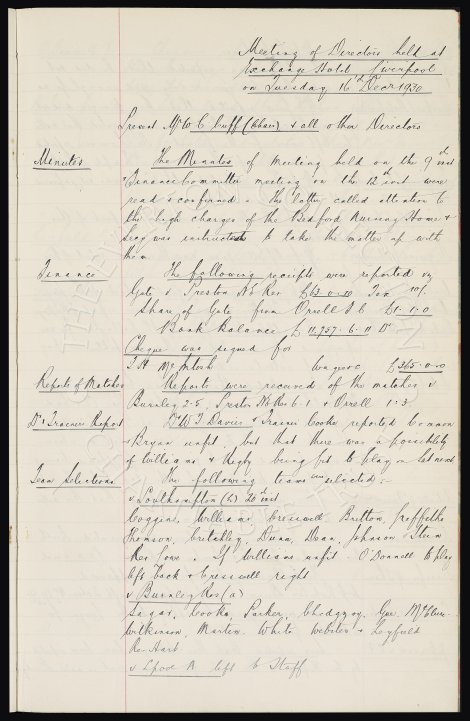 Meeting of Directors held at
Exchange Hotel Liverpool
on Tuesday 16th Decr 1930
Present Mr W C Cuff (Chair) & all other Directors
Minutes The Minutes of Meeting held on the 9th inst
& Finance Committee meeting on the 12th inst were
read & confirmed. The latter called attention to
the high charges of the Bedford Nursing Home &
Secy was instructed to take the matter up with
them
Finance The following receipts were reported viz
Gate v Preston N E Res £63-0-10 Tax 10/.
Share of Gate from Orrell F C £1-1-0
Bank Balance £ 11,757-6-11 Dr
Cheque was signed for
T H McIntosh Wages £365-0-0
Reports of Matches Reports were received of the matches v
Burnley 2-5, Preston N E Res 6-1 & Orrell 1-3
Drs Trainers Report Dr W T Davies & Trainer Cooke reported Common
& Bryan unfit, but that there was a possibility
of Williams & Rigby being fit to play on Sat next
Team Selections The following teams were selected:-
v Southampton (h) 20th inst
Coggins, Williams Cresswell Britton, Griffiths
Thomson, Critchley, Dunn, Dean, Johnson & Stein
Res Lowe. If Williams unfit O'Donnell to play
left back & Cresswell right
v Burnley Res (a)
Sagar, Cooke, Parker, Chedgzoy, Gee, McClure
Wilkinson, Martin, White Webster & Leyfield
Res
v Lpool A left to Staff